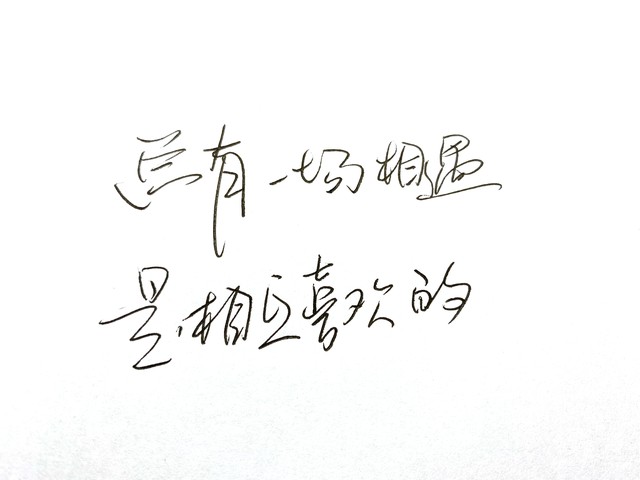 总有一场相遇
是相互喜欢的